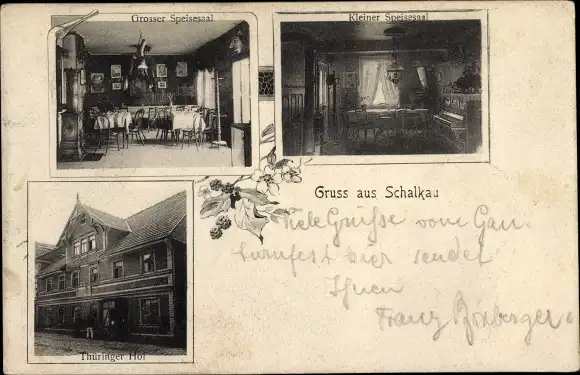 Grosser Speisesaal
Kleiner Speisesaal
Gruss aus Schalkau
Viele Grüsse vom Gau-
turnfest hier sendet
Ihnen
Franz
Thüringer Hof